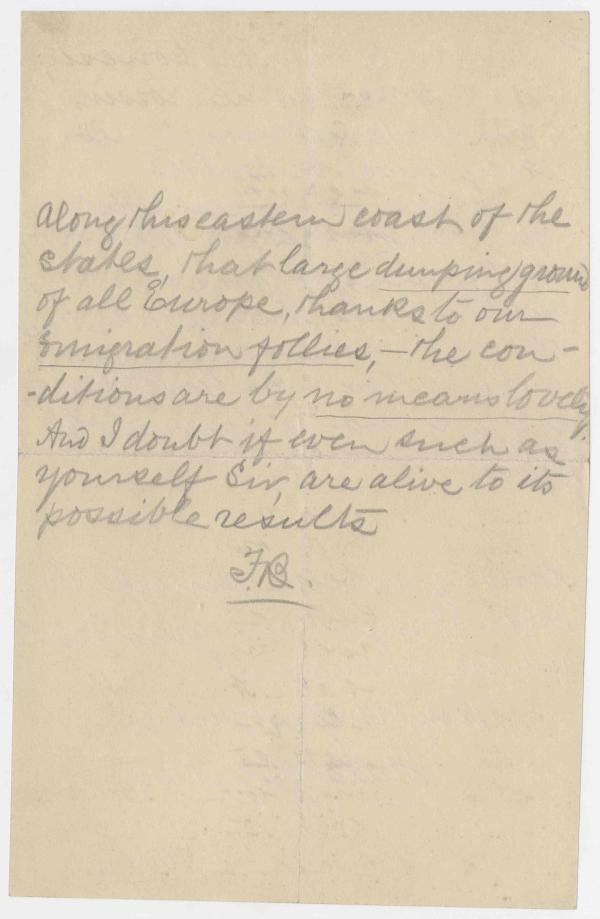 Along this eastern coast of the
states, that large dumping ground
of all Europe, thanks to our
Emigration follies, - the con-
-ditions are by no means lovely.
And I doubt if even such as
yourself Sir, are alive to its
possible results
F.B.